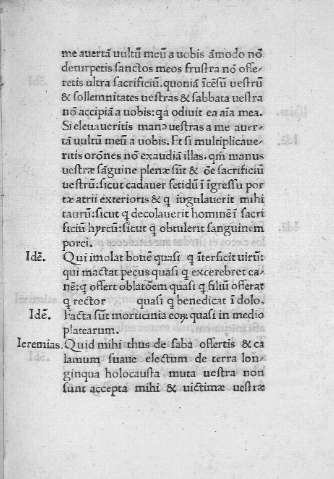 me auertā uultū meū a uobis āmodo nō
deturpetis sanctos meos frustra nō offe-
retis ultra sacrificiū. quoniā īcēsū uestrū
& sollemnitates uestras & sabbata uestra
nō accipiā a uobis: qa odiuit ea aīa mea.
Si eleuaueritis manꝰ uestras a me auer-
tā uultū meū a uobis. Et si multiplicaue-
ritis orōnes nō exaudiā illas. qm̄ manus
uestræ sāguine plenæ sūt & oē sacrificiū
uestrū: sicut cadauer fetidū ī īgressu por
tæ atrii exterioris & q iugulauerit mihi
taurū: sicut q decolauerit hominē ī sacri
ficiū hircū: sicut q obtulerit sanguinem
porci.
Idē. Qui imolat bouē quasi q īterficit uirū:
qui mactat pecus quasi q excerebret ca-
nē: q offert oblatōem quasi q filiū offerat
q rector quasi q benedicat ī dolo.
Idē. Facta sūt morticinia eoꝝ quasi in medio
platearum.
Ieremias. Quid mihi thus de saba offertis & ca
lamum suaue electum de terra lon-
ginqua holocausta muta uestra non
sunt accepta mihi & uictimæ uestræ